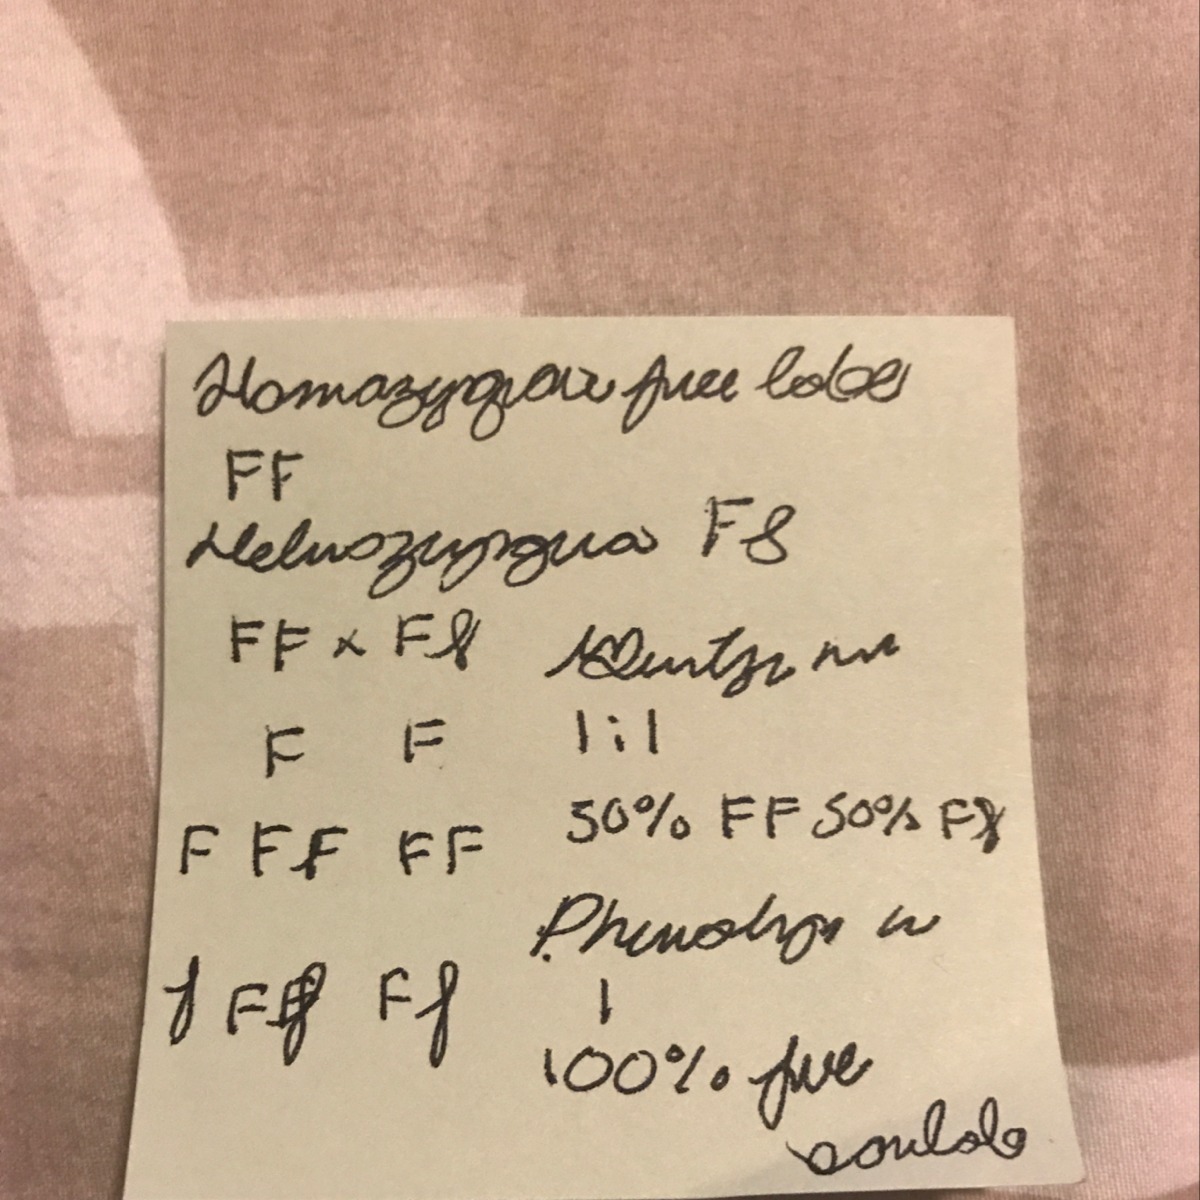 Homozygous free lobes
FF
Heterozygous Ff
FF x Ff
F F
1:1
F FF FF
50% FF 50% Ff
Phenotype is
f Ff Ff
1
100% free
earlobe